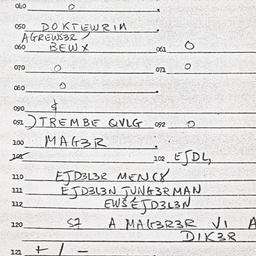 040 O
050 DOKTEWRIM
AGREWS3R
060 BEWX 061 O
070 O 071 O
080 O
090
091 )TREMBE QVLG 092 O
100 MAG3R
101 102 EJDL,
110 EJD3L3R MENCX
111 EJD3L3N JUNG3RMAN
112 EWS EJD3L3N
120 S7 A MAG3R3R VI A
DIK3R
121 + / -